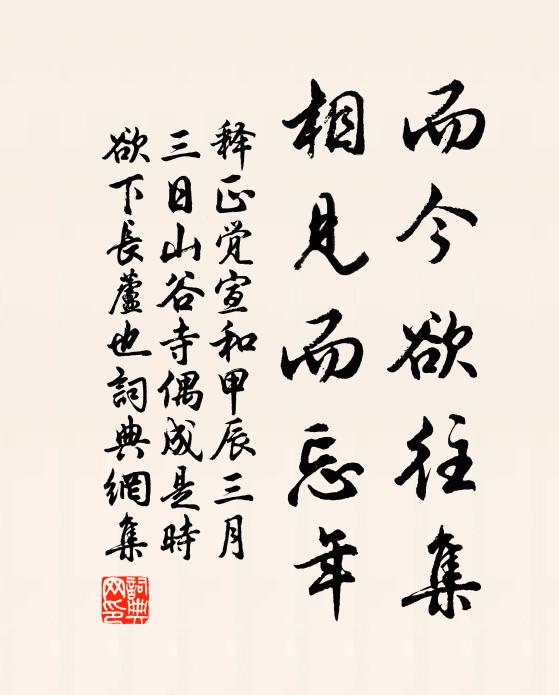 而今欲往集
相见而忘年
释正觉宣和甲辰三月
三日山谷寺偶成是時
欲下長蘆也詞典網集
詞典
网印